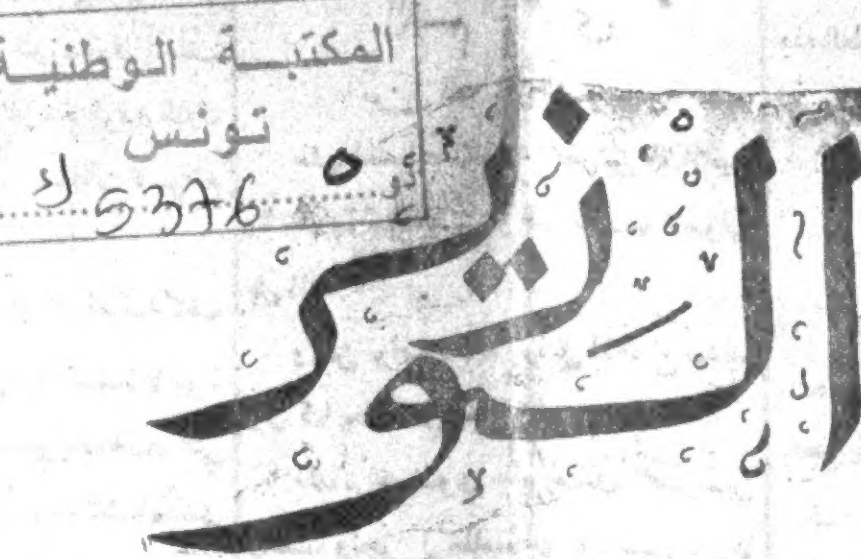 المكتبة الوطنية
تونس
5376
الوزير